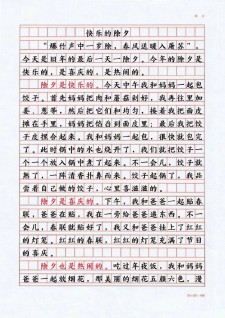 快乐的除夕
“爆竹声中一岁除，春风送暖入屠苏”。
今天是旧年的最后一天—除夕。今年的除夕是
快乐的，是喜庆的，是热闹的。
除夕是快乐的。今天中午我和妈妈一起包
饺子。首先妈妈把肉和蘑菇剁好，我再往里加
姜、葱等。然后把它们和均匀，接着妈妈把面皮
摊在手里，妈妈把馅舀到面皮里；最后我把饺
子捏成元宝的形状。我和妈妈一起包，很快就包完
了。此时锅中的水也烧开了，我们就把饺子一
个一个放入锅中煮了起来。不一会儿，饺子就熟
了，一阵清香扑鼻而来。饺子起锅了，我品
尝着自己做的饺子，心里喜滋滋的。
除夕是喜庆的。下午，我和爸爸一起贴春
联，爸爸在贴，我在一旁给爸爸递东西。不一会
儿，春联贴好了。我又和爸爸一起挂上了红红
的灯笼。红红的春联，红红的灯笼充满了节日
的喜庆。
除夕也是热闹的。吃过年夜饭，我和妈妈
爸爸一起放烟花，那美丽的烟花五颜六色，漫